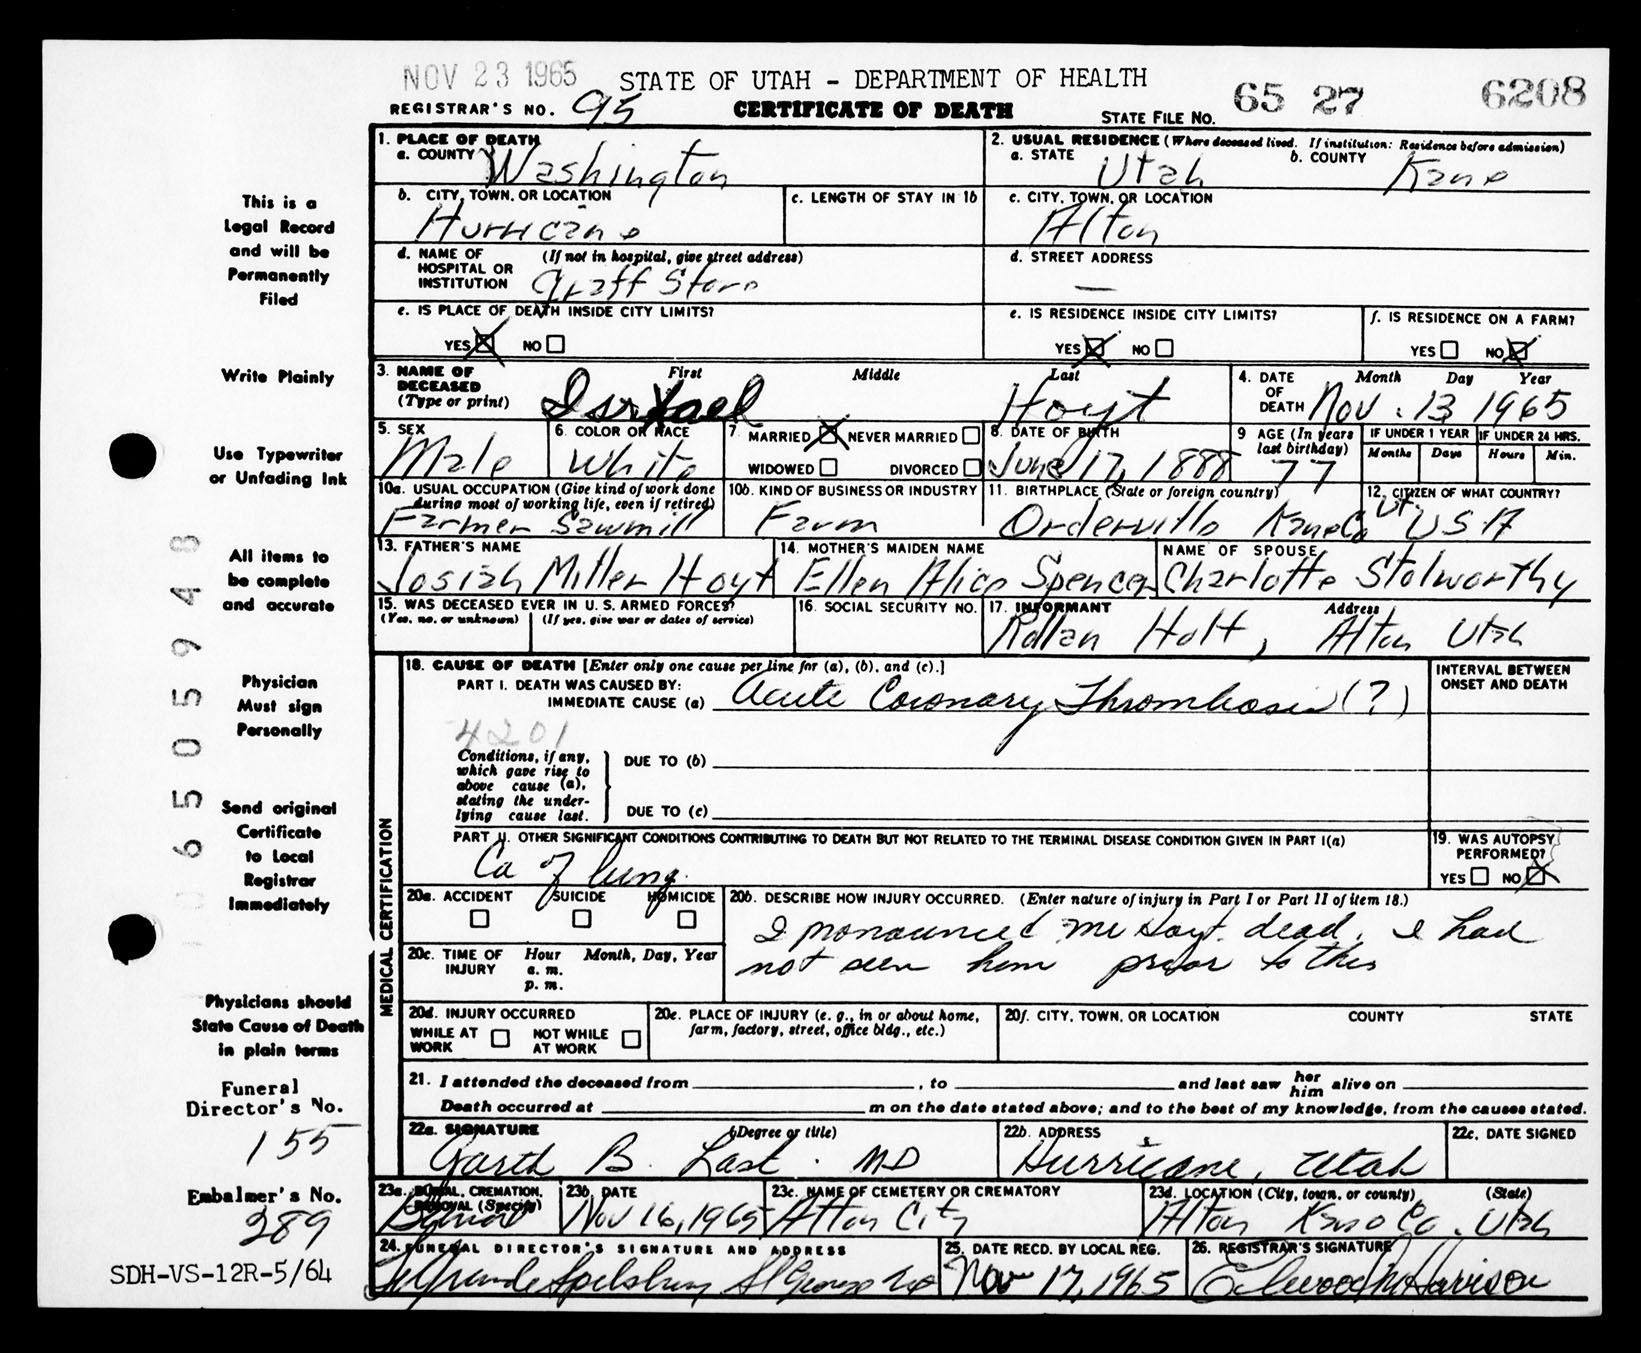 NOV 23 1965 STATE OF UTAH - DEPARTMENT OF HEALTH 65 27 6208
REGISTRAR'S NO. 95 CERTIFICATE OF DEATH STATE FILE NO.
1. PLACE OF DEATH
a. COUNTY Washington
2. USUAL RESIDENCE (Where deceased lived. If institution: Residence before admission)
a. STATE Utah b. COUNTY Kane
b. CITY, TOWN, OR LOCATION Hurricane
c. LENGTH OF STAY IN 1b
c. CITY, TOWN, OR LOCATION Alton
d. NAME OF HOSPITAL OR INSTITUTION (If not in hospital, give street address) Graff Store
d. STREET ADDRESS —
e. IS PLACE OF DEATH INSIDE CITY LIMITS?
YES NO
e. IS RESIDENCE INSIDE CITY LIMITS?
YES NO
f. IS RESIDENCE ON A FARM?
YES NO
3. NAME OF DECEASED (Type or print) First Middle Last
Israel Hoyt
4. DATE OF DEATH Month Day Year
Nov. 13 1965
5. SEX Male
6. COLOR OR RACE White
7 MARRIED NEVER MARRIED
WIDOWED DIVORCED
8. DATE OF BIRTH June 17, 1888
9 AGE (In years last birthday) 77
IF UNDER 1 YEAR Months Days
IF UNDER 24 HRS. Hours Min.
10a. USUAL OCCUPATION (Give kind of work done during most of working life, even if retired)
Farmer Sawmill
10b. KIND OF BUSINESS OR INDUSTRY
Farm
11. BIRTHPLACE (State or foreign country)
Orderville Kane Co Ut.
12. CITIZEN OF WHAT COUNTRY?
USA
13. FATHER'S NAME
Josiah Miller Hoyt
14. MOTHER'S MAIDEN NAME
Ellen Alice Spencer
NAME OF SPOUSE
Charlotte Stolworthy
15. WAS DECEASED EVER IN U.S. ARMED FORCES?
(Yes, no, or unknown) (If yes, give war or dates of service)
16. SOCIAL SECURITY NO.
17. INFORMANT Address
Rollan Holt, Alton Utah
MEDICAL CERTIFICATION
18. CAUSE OF DEATH [Enter only one cause per line for (a), (b), and (c).]
PART I. DEATH WAS CAUSED BY:
IMMEDIATE CAUSE (a) Acute Coronary Thrombosis (?)
INTERVAL BETWEEN ONSET AND DEATH
4201
Conditions, if any, which gave rise to above cause (a), stating the underlying cause last.
DUE TO (b)
DUE TO (c)
PART II. OTHER SIGNIFICANT CONDITIONS CONTRIBUTING TO DEATH BUT NOT RELATED TO THE TERMINAL DISEASE CONDITION GIVEN IN PART I(a)
Ca of lung.
19. WAS AUTOPSY PERFORMED?
YES NO
20a. ACCIDENT SUICIDE HOMICIDE
20b. DESCRIBE HOW INJURY OCCURRED. (Enter nature of injury in Part I or Part II of item 18.)
I pronounced Mr Hoyt dead. I had
not seen him prior to this
20c. TIME OF INJURY Hour Month, Day, Year
a. m.
p. m.
20d. INJURY OCCURRED
WHILE AT WORK NOT WHILE AT WORK
20e. PLACE OF INJURY (e. g., in or about home, farm, factory, street, office bldg., etc.)
20f. CITY, TOWN, OR LOCATION COUNTY STATE
21. I attended the deceased from , to and last saw her him alive on
Death occurred at m on the date stated above; and to the best of my knowledge, from the causes stated.
22a. SIGNATURE (Degree or title)
Garth B. Last. MD
22b. ADDRESS
Hurricane, Utah
22c. DATE SIGNED
23a. BURIAL, CREMATION, REMOVAL (Specify)
Burial
23b. DATE
Nov 16, 1965
23c. NAME OF CEMETERY OR CREMATORY
Alton City
23d. LOCATION (City, town, or county) (State)
Alton Kane Co. Utah
24. FUNERAL DIRECTOR'S SIGNATURE AND ADDRESS
Spilsbury St George
25. DATE RECD. BY LOCAL REG.
Nov 17, 1965
26. REGISTRAR'S SIGNATURE
Elwood Harrison
This is a
Legal Record
and will be
Permanently
Filed
Write Plainly
Use Typewriter
or Unfading Ink
All items to
be complete
and accurate
Physician
Must sign
Personally
Send original
Certificate
to Local
Registrar
Immediately
Physicians should
State Cause of Death
in plain terms
Funeral
Director's No.
155
Embalmer's No.
289
SDH-VS-12R-5/64
065505948